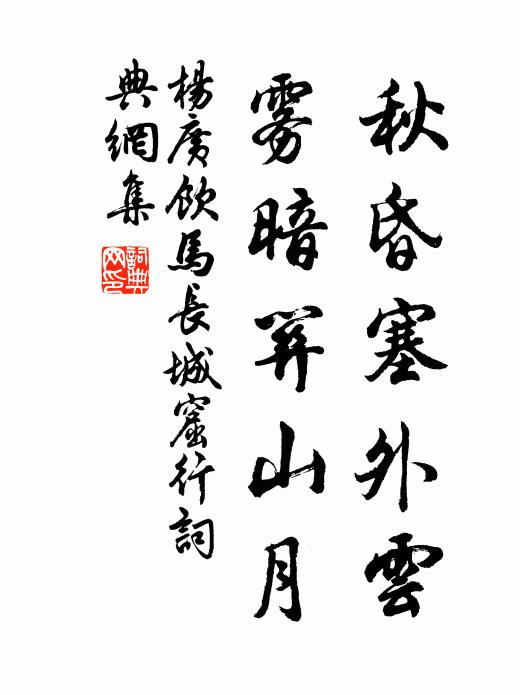 秋昏塞外雲
雾暗関山月
楊廣飲馬長城窟行詞
典網集
詞典
网印